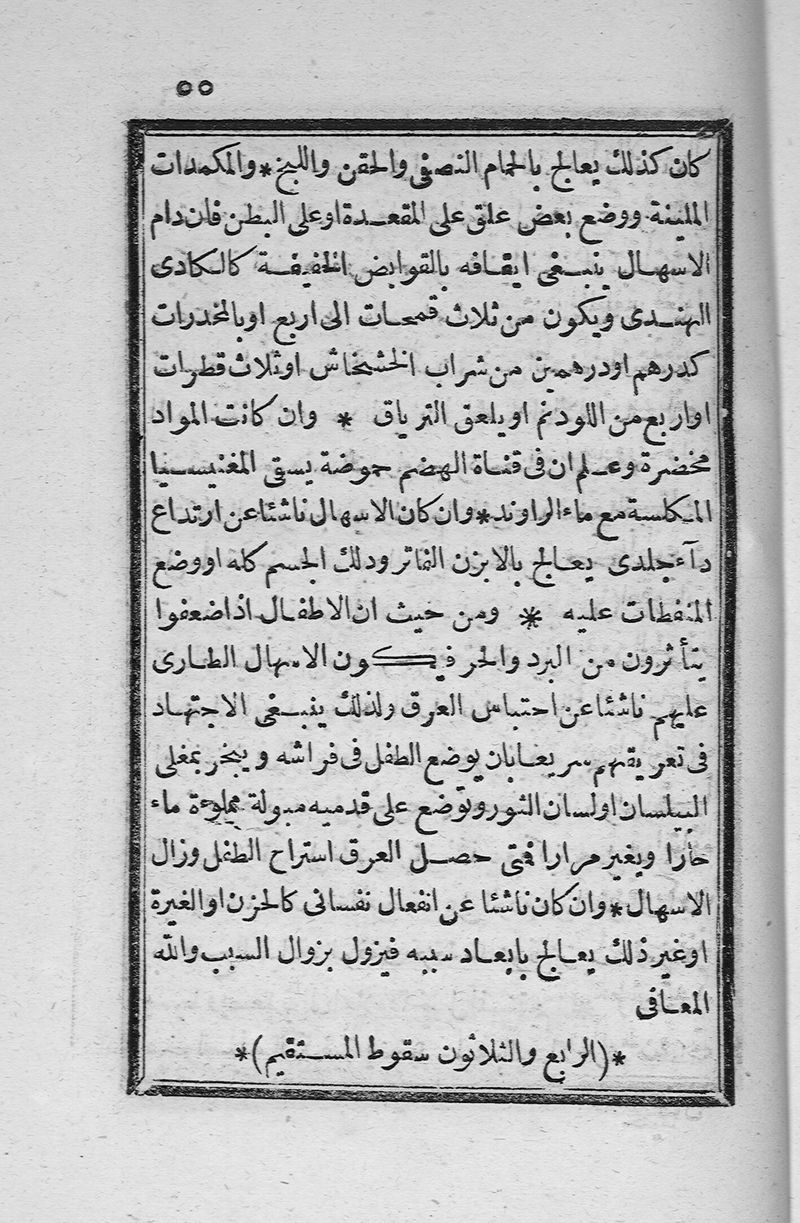 ٥٥
كان كذلك يعالج بالحمام النصفى والحقن واللبخ * والمكمدات
الملينة ووضع بعض علق على المقعدة او على البطن فان دام
الاسهال ينبغى ايقافه بالقوابض الخفيفة كالكادى
الهندى ويكون من ثلاث قمحات الى اربع او بالمخدرات
كدرهم او درهمين من شراب الخشخاش او ثلاث قطرات
او اربع من اللودنم او يلعق الترياق * وان كانت المواد
مخضرة وعلم ان فى قناة الهضم حموضة يسقى المغنيسيا
المكلسة مع ماء الراوند * وان كان الاسهال ناشئا عن ارتداع
دآء جلدى يعالج بالابزن الفاتر ودلك الجسم كله او وضع
المنفطات عليه * ومن حيث ان الاطفال اذا ضعفوا
يتأثرون من البرد والحر فيكون الاسهال الطارى
عليهم ناشئا عن احتباس العرق ولذلك ينبغى الاجتهاد
فى تعريقهم سريعا بان يوضع الطفل فى فراشه ويبخر بمغلى
البيلسان او لسان الثور وتوضع على قدميه مبولة مملوءة ماء
حارا ويغير مرارا فمتى حصل العرق استراح الطفل وزال
الاسهال * وان كان ناشئا عن انفعال نفسانى كالحزن او الغيرة
او غير ذلك يعالج بابعاد سببه فيزول بزوال السبب والله
المعافى
*(الرابع والثلاثون سقوط المستقيم)*